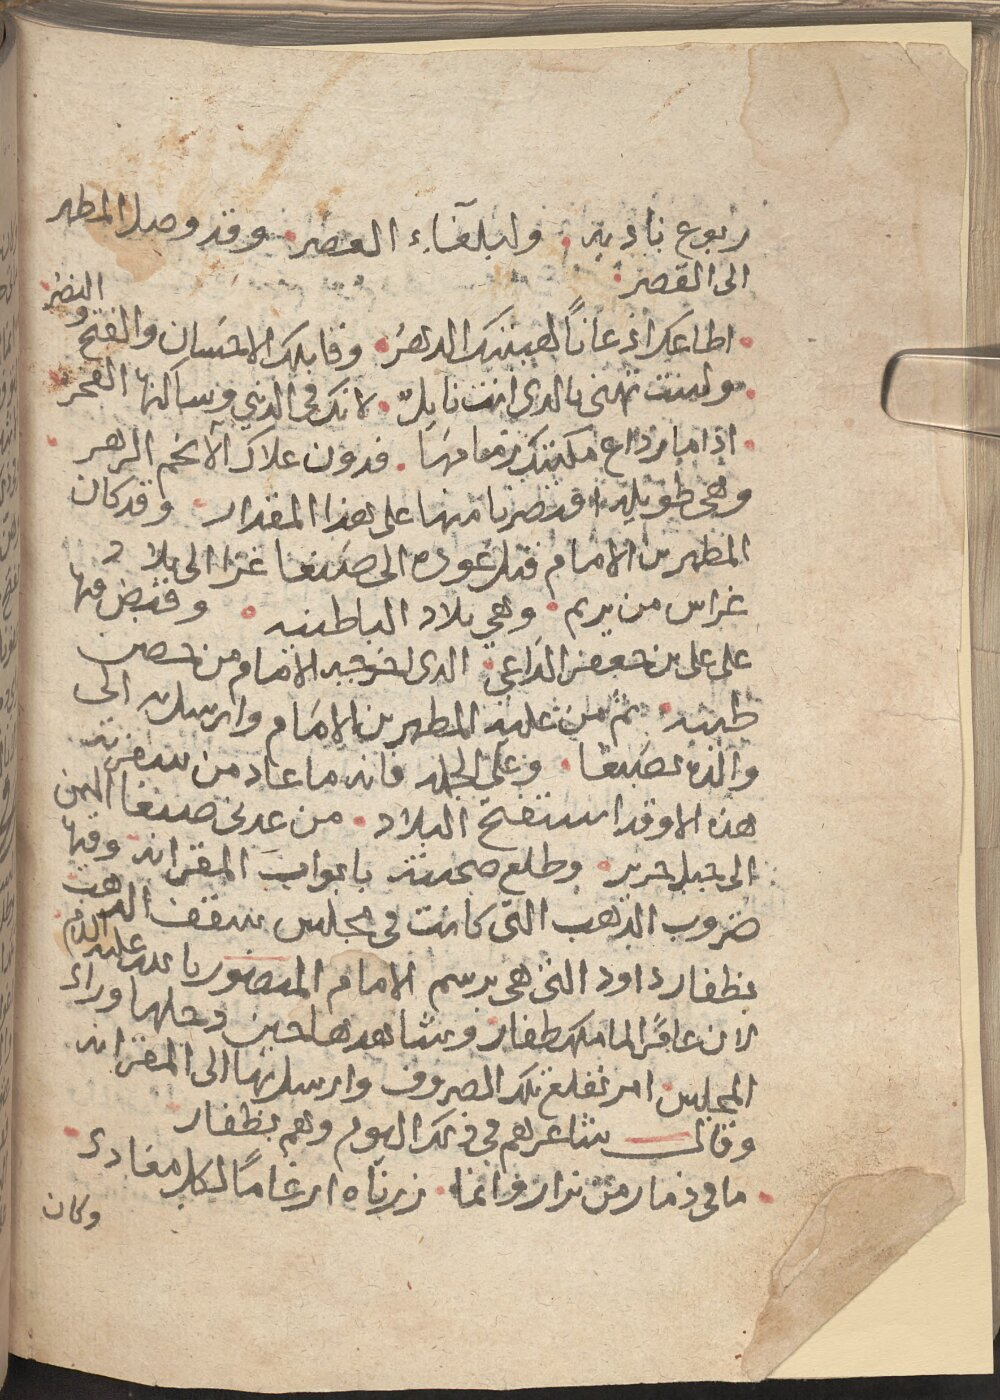 ربوع نادیه . ولبلغاء العصر . وقد وصل المطهر
الى القصر .
اطاعك اذعاناً لهيبتك الدهرُ . وقابلك الاحسان والفتح والنصرُ
ولسنت تهنى بالدى انت نايلٌ . لانك فى الدنيا وساكنها الفخر
اذا ما رداع مكنتك زمامها . فدون علاك الانجم الزهر
وهي طويله اقتصرنا منها على هذا المقدار . وقد كان
المطهر بن الامام قبل عوده الى صنعا غزا الى بلاد
غراس من يريم . وهي بلاد الباطنيه . وقبض فيها
على على بن جعفر الداعي . الدى اخرجه الامام من حصن
طيبه . ثم من عليه المطهر بن الامام وارسل به الى
والده بصنعا . وعلى الجله فانه ما عاد من سفرته
هذه الا وقد استفتح البلاد . من عدنى صنعا اليمن
الى جبل حرير . وطلع صحبته بابواب المقرانه وفيها
ضروب الذهب التى كانت فى مجلس سقف الذهب
بظفار داود التى هى برسم الامام المنصور بالله عليه السلام
لان عامرًا لما ملك ظفار وشاهدها حين دخلها وراء
المجلس امر بقلع تلك الصروف وارسل بها الى المقرانه
وقال شاعرهم فى ذلك اليوم وهم بظفار
ما فى ذمار من نزار وانما . زرناه ارغامًا لكل معادى
وكان